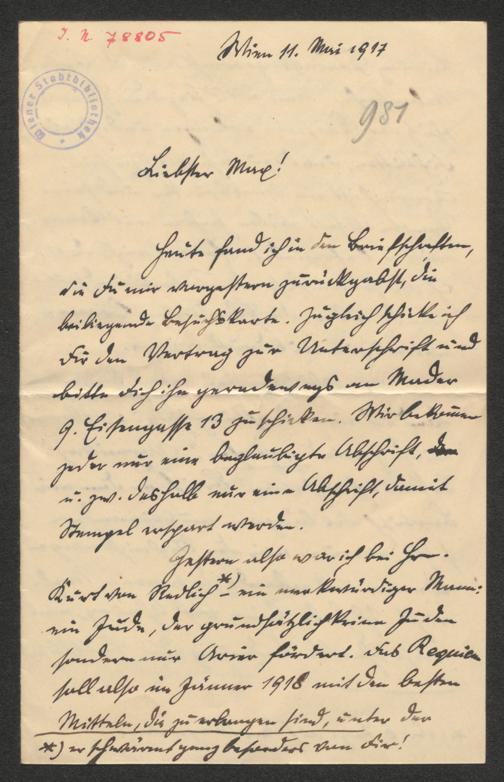 J. N. 78805
Wien 11. Mai 1917
Wiener Stadtbibliothek
981
Liebster Max!
Heute fand ich in den Briefschaften,
die Du mir vorgestern zurückgabst, die
beiliegende Besuchskarte. Zugleich schicke ich
Dir den Vertrag zur Unterschrift und
bitte Dich ihn geradenwegs an Mader
9. Eisengasse 13 zu schicken. Wir bekommen
jeder nur eine beglaubigte Abschrift,
u. zw. deshalb nur eine Abschrift, damit
Stempel erspart werden.
Gestern also war ich bei Hrn.
Kurt von Redlich *) – ein merkwürdiger Mann:
ein Jude, der grundsätzlich keine Juden
sondern nur Arier fördert. Das Requiem
soll also im Jänner 1918 mit den besten
Mitteln, die zu erlangen sind, unter der
*) er schwärmt ganz besonders von Dir!